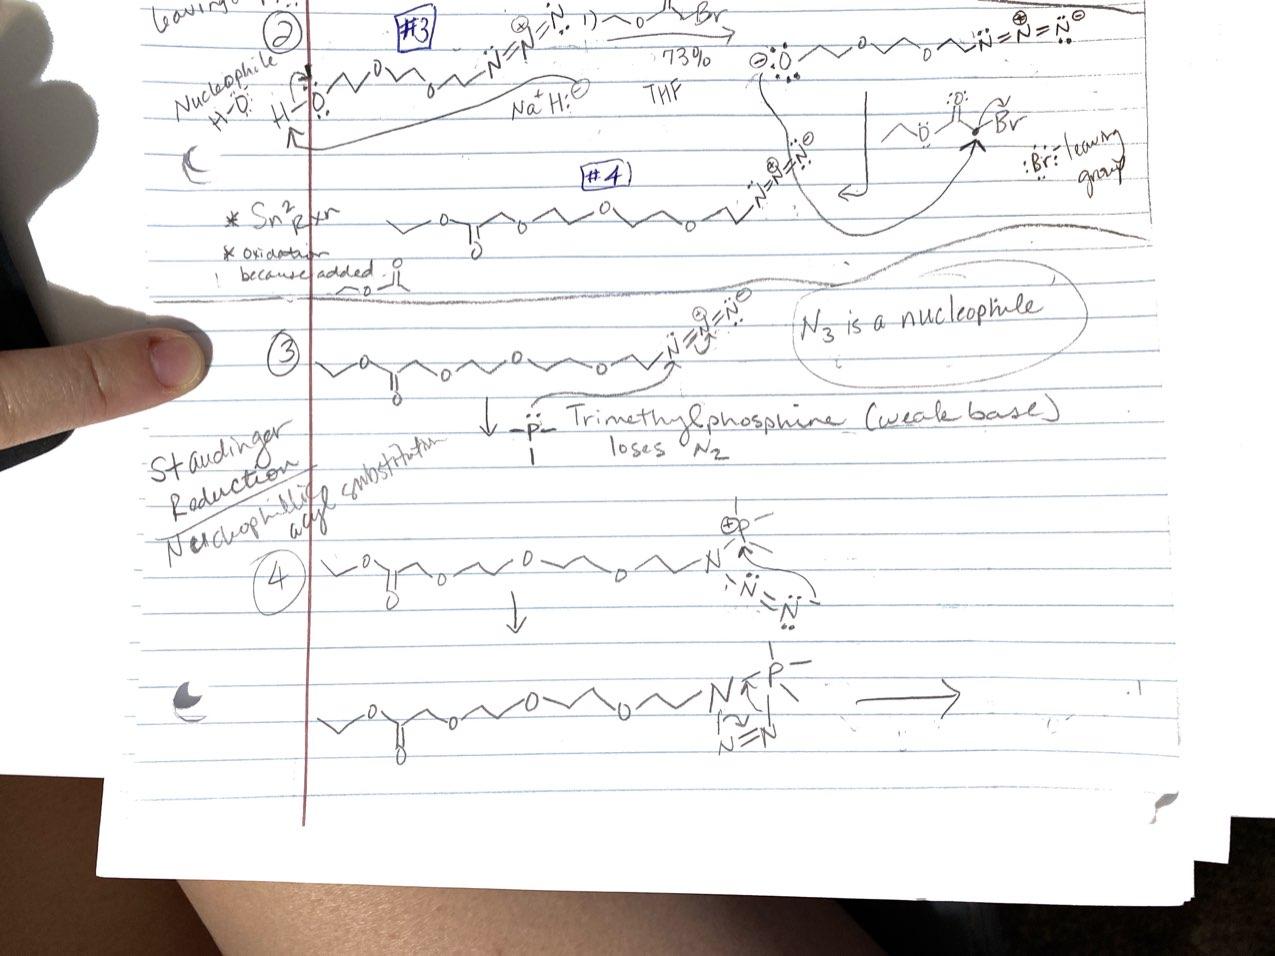 leaving
② #3
1) O Br
73%
THF
Na⁺ H:⊖
Nucleophile
H-Ö:
H-O O O N=N=N
⊖:O O O N=N=N ⊖
:O: O Br
:Br: leaving
group
#4
* Sn2 Rxn
* oxidation
because added
O O
O O O O O N=N=N
③ O O O O O N=N=N
N₃ is a nucleophile
-P- Trimethylphosphine (weak base)
loses N₂
Staudinger
Reduction
Neuchophillic
acyl substitution
④ O O O O O N P⊕
N=N
O O O O O N P
N=N